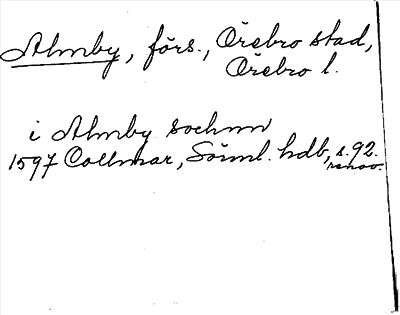 Almby, förs., Örebro stad,
Örebro l.
i Almby sochnn
1597 Collmar, Söml. hdb, s. 92.
renov.